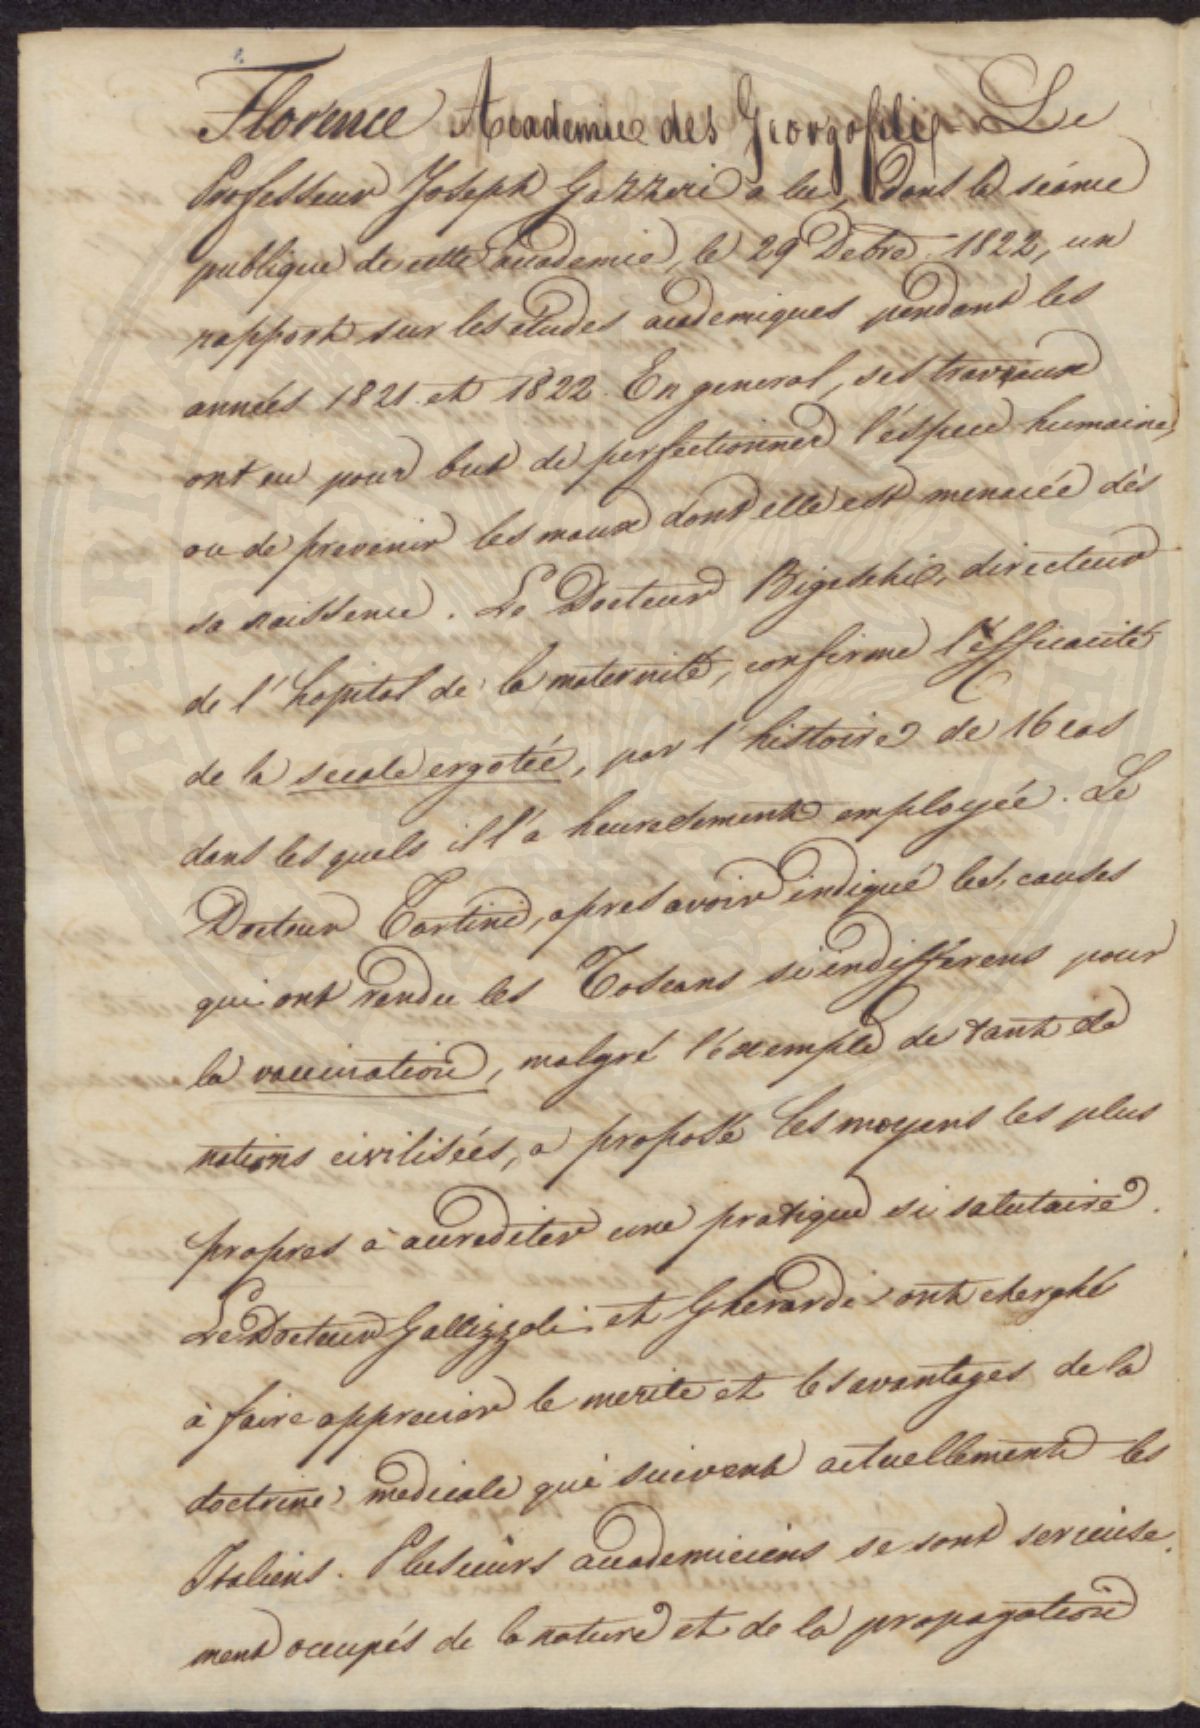 Florence Academie des Georgofili – Le
Professeur Joseph Gazzeri a lu, dans la séance
publique de cette academie, le 29 Debre 1822, un
rapport sur les études academiques pendant les
années 1821 et 1822. En general, ses travaux
ont eu pour but de perfectionner l'éspece humaine,
ou de prevenir les maux dont elle est menacée dès
sa naissence. Le Docteur Bigeschi, directeur
de l'hopital de la maternité, confirme l'efficacité
de la secale ergotée, par l'histoire de 16 cas
dans les quels il l'a heuresement employée. Le
Docteur Tartini, apres avoir indiqué les causes
qui ont rendu les Toscans si indifférens pour
la vaccination, malgré l'éxemple de tant de
nations civilisées, a proposé les moyens les plus
propres à accrediter une pratique si salutaire.
Le Docteur Gallizzoli et Gherardi ont cherché
à faire apprecier le merite et les avantages de la
doctrine medicale qui suivent actuellement les
Italiens. Plusieurs academiciens se sont serieuse-
ment occupés de la nature et de la propagation